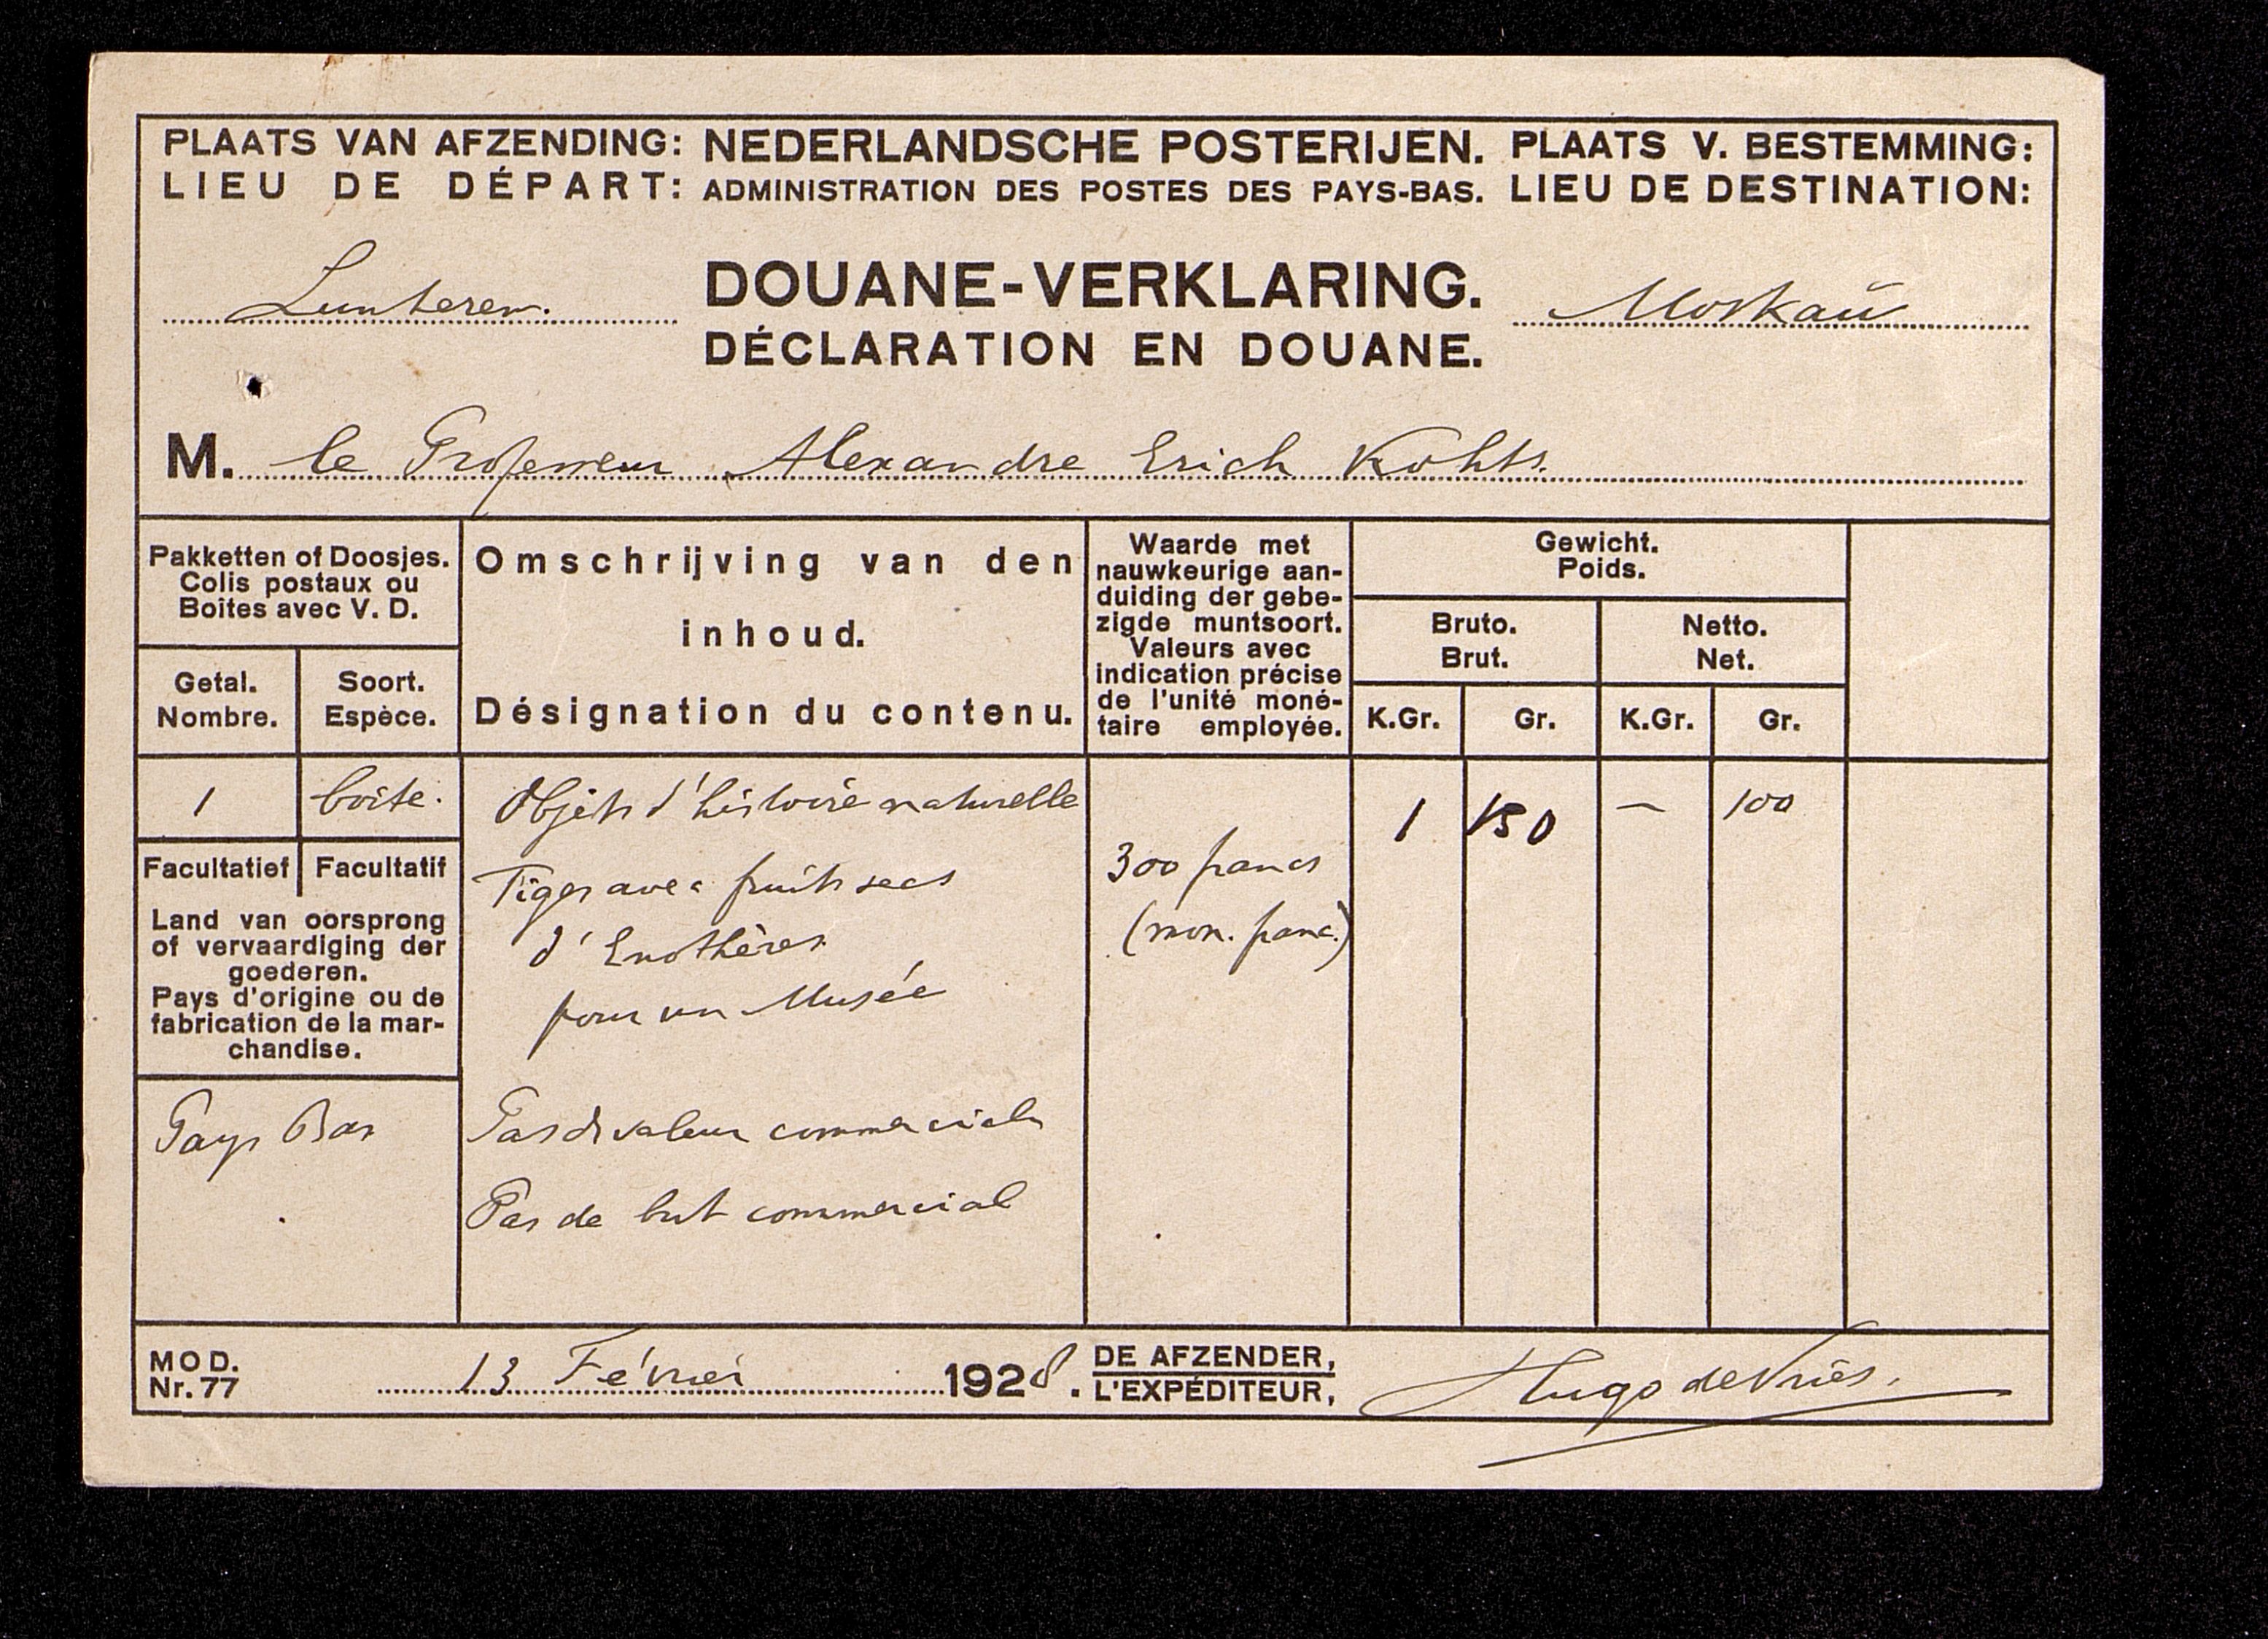 PLAATS VAN AFZENDING: NEDERLANDSCHE POSTERIJEN. PLAATS V. BESTEMMING:
LIEU DE DÉPART: ADMINISTRATION DES POSTES DES PAYS-BAS. LIEU DE DESTINATION:
Lunteren. DOUANE-VERKLARING. Moskaŭ
DÉCLARATION EN DOUANE.
M. le Professeur Alexandre Erich Kohts.
Pakketten of Doosjes.
Colis postaux ou
Boites avec V. D.
Getal.
Nombre.
Soort.
Espèce.
Omschrijving van den
inhoud.
Désignation du contenu.
Waarde met
nauwkeurige aan-
duiding der gebe-
zigde muntsoort.
Valeurs avec
indication précise
de l'unité moné-
taire employée.
Gewicht.
Poids.
Bruto.
Brut.
Netto.
Net.
K.Gr. Gr. K.Gr. Gr.
1 boite.
Objets d'histoire naturelle
Tiges avec fruits secs
d'Enothères
pour un Musée
Pas de valeur commerciale
Pas de but commercial
300 francs
(mon. franc.)
1 150 — 100
Facultatief Facultatif
Land van oorsprong
of vervaardiging der
goederen.
Pays d'origine ou de
fabrication de la mar-
chandise.
Pays Bas
MOD.
Nr. 77
13 Février 1928.
DE AFZENDER,
L'EXPÉDITEUR,
Hugo de Vries.